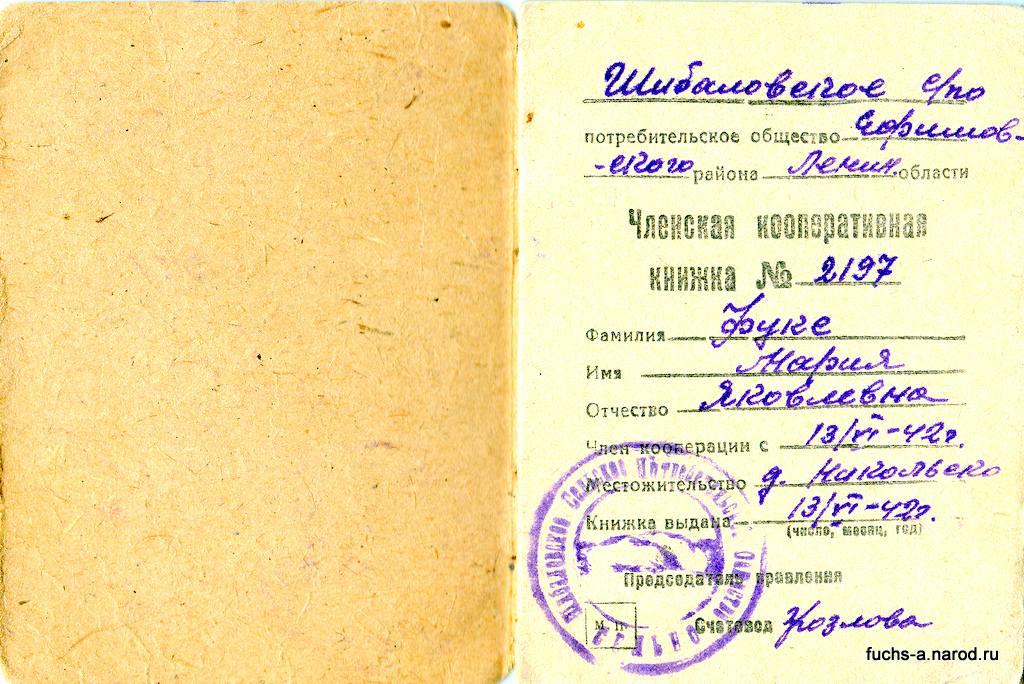 Шибаловское с/по
потребительское общество Ефимов-
-ского района Ленин. области
Членская кооперативная
книжка № 2197
Фамилия Фукс
Имя Мария
Отчество Яковлевна
Член кооперации с 13/VI-42г.
Местожительство д. Никольско
Книжка выдана 13/VI-42г.
(число, месяц, год)
Председатель правления
М. П.
Счетовод Козлова
fuchs-a.narod.ru